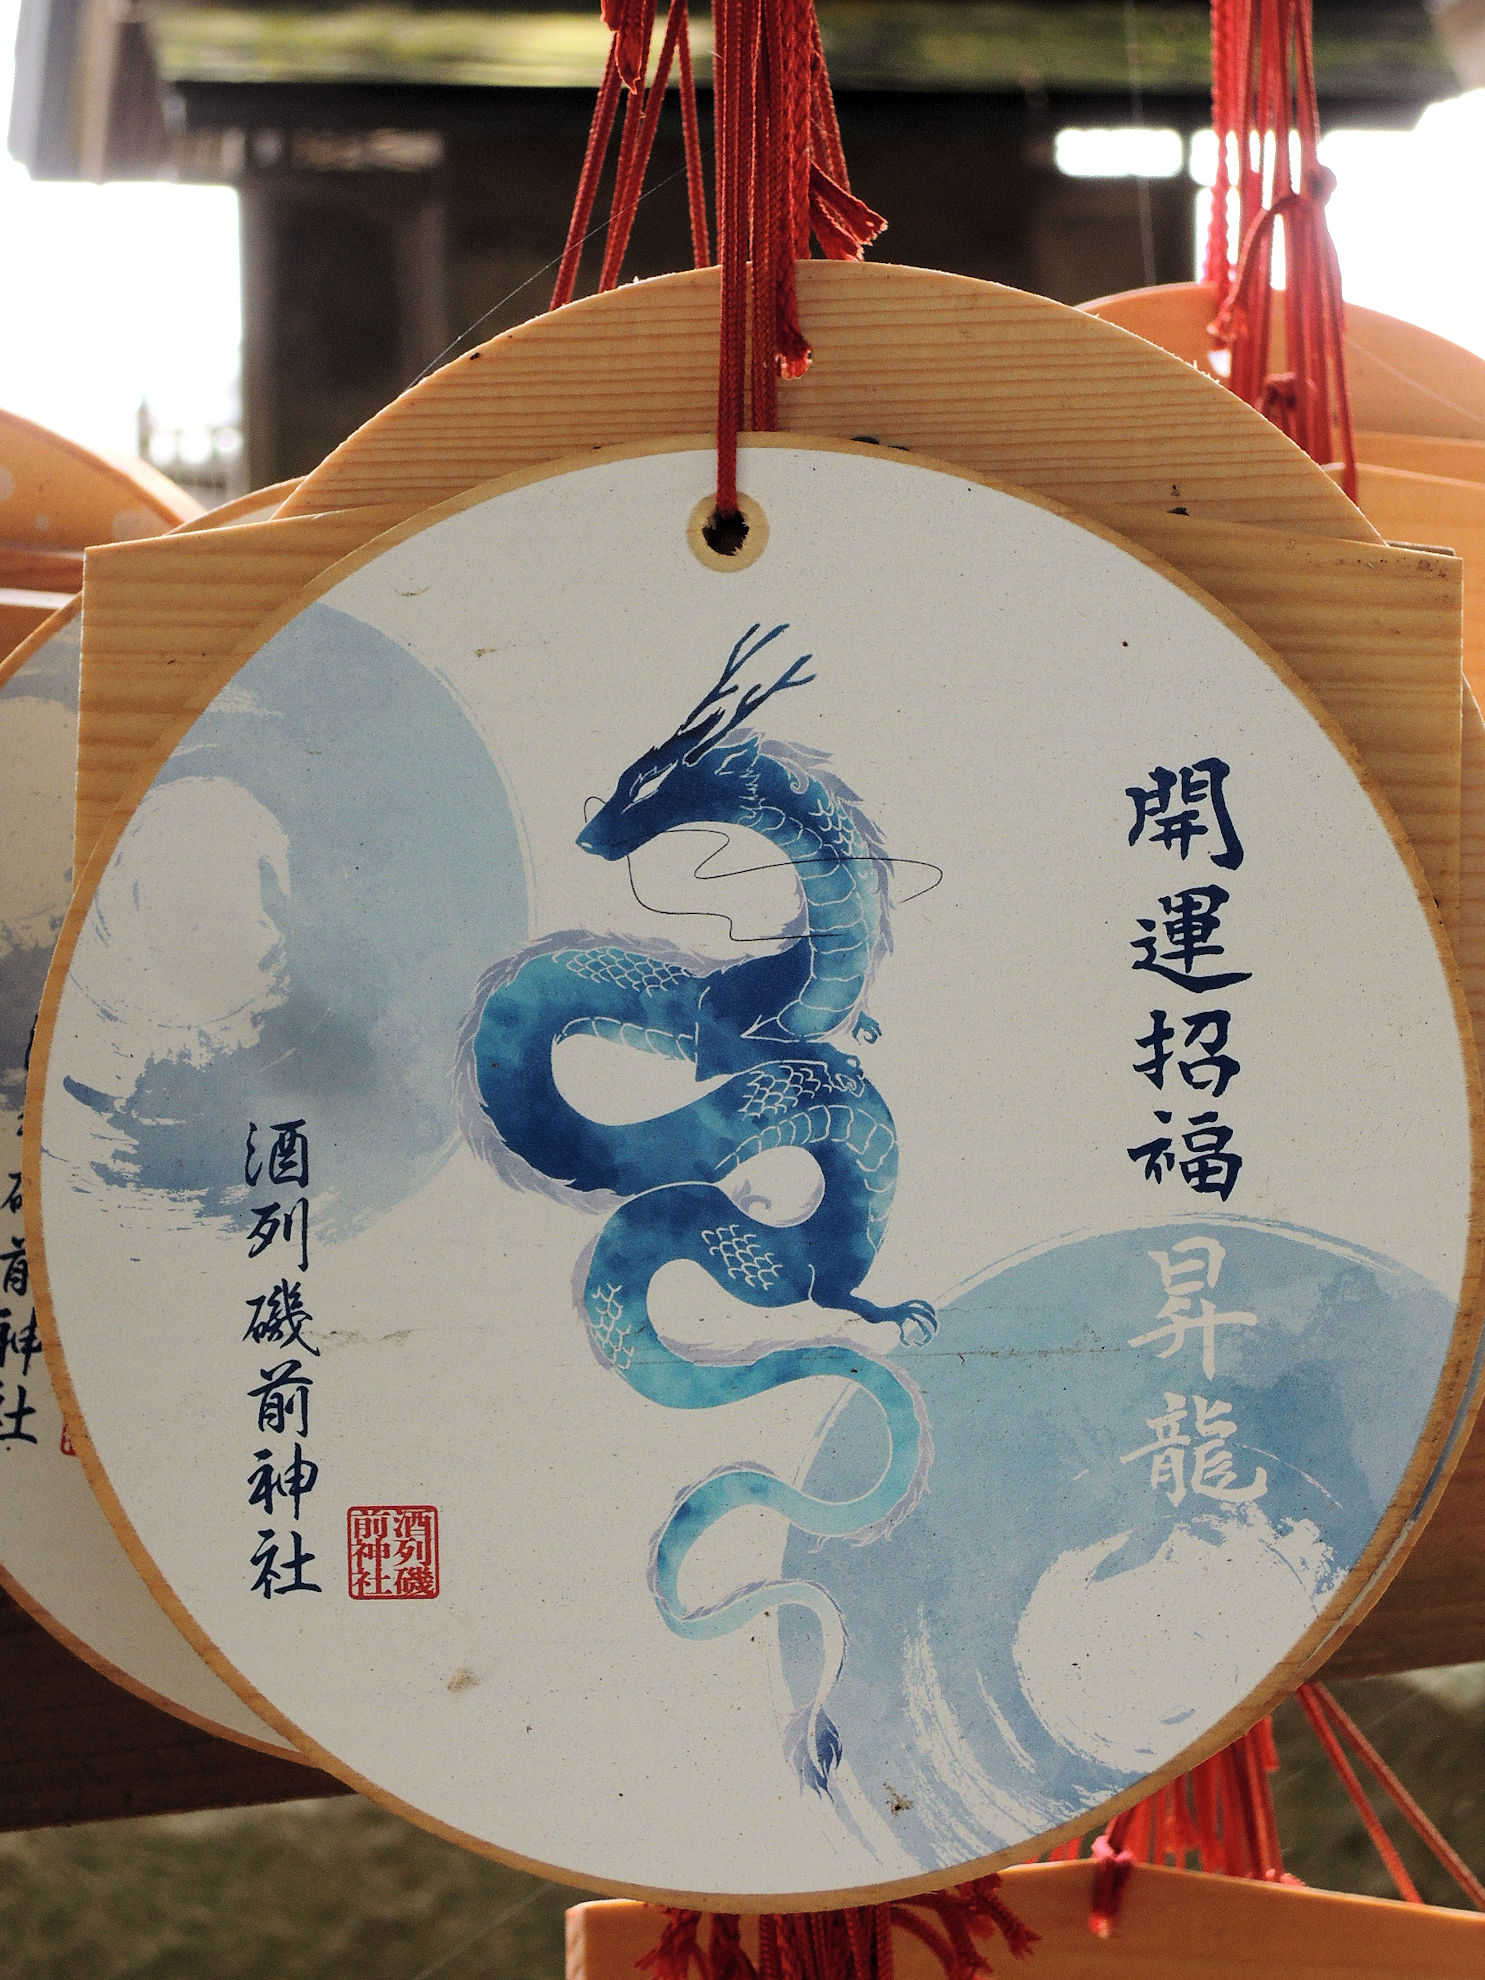 開運招福
昇龍
酒列磯前神社
酒列磯
前神社
前神社